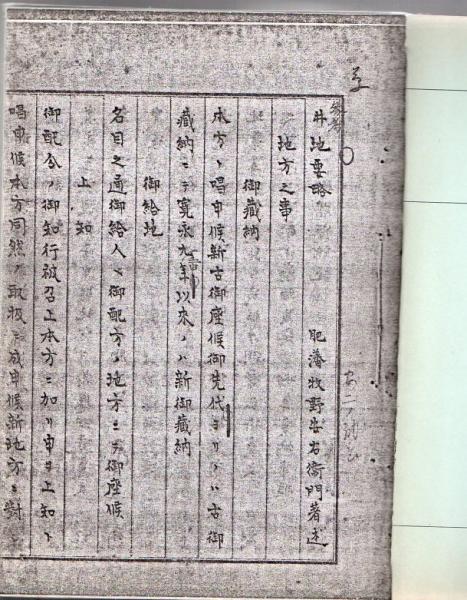 井地要略　肥藩牧野安右衛門著述
地方之事
御藏納
本方ト唱申候新古御座候御先代ヨリノハ古御
藏納ニテ寛永九年以來ノハ新御藏納
御給地
名目之通御給人ヘ御配方ノ地方ニテ御座候
上知
御配分ノ御知行被召上本方ニ加リ申ヲ上知ト
唱申候本方同然ノ取扱ニ成申候新地方ニ對